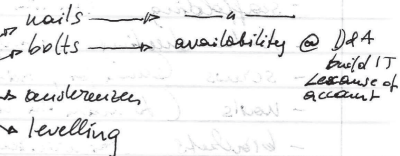 nails
bolts → availability @ D&A
build IT
because of
account
levelling